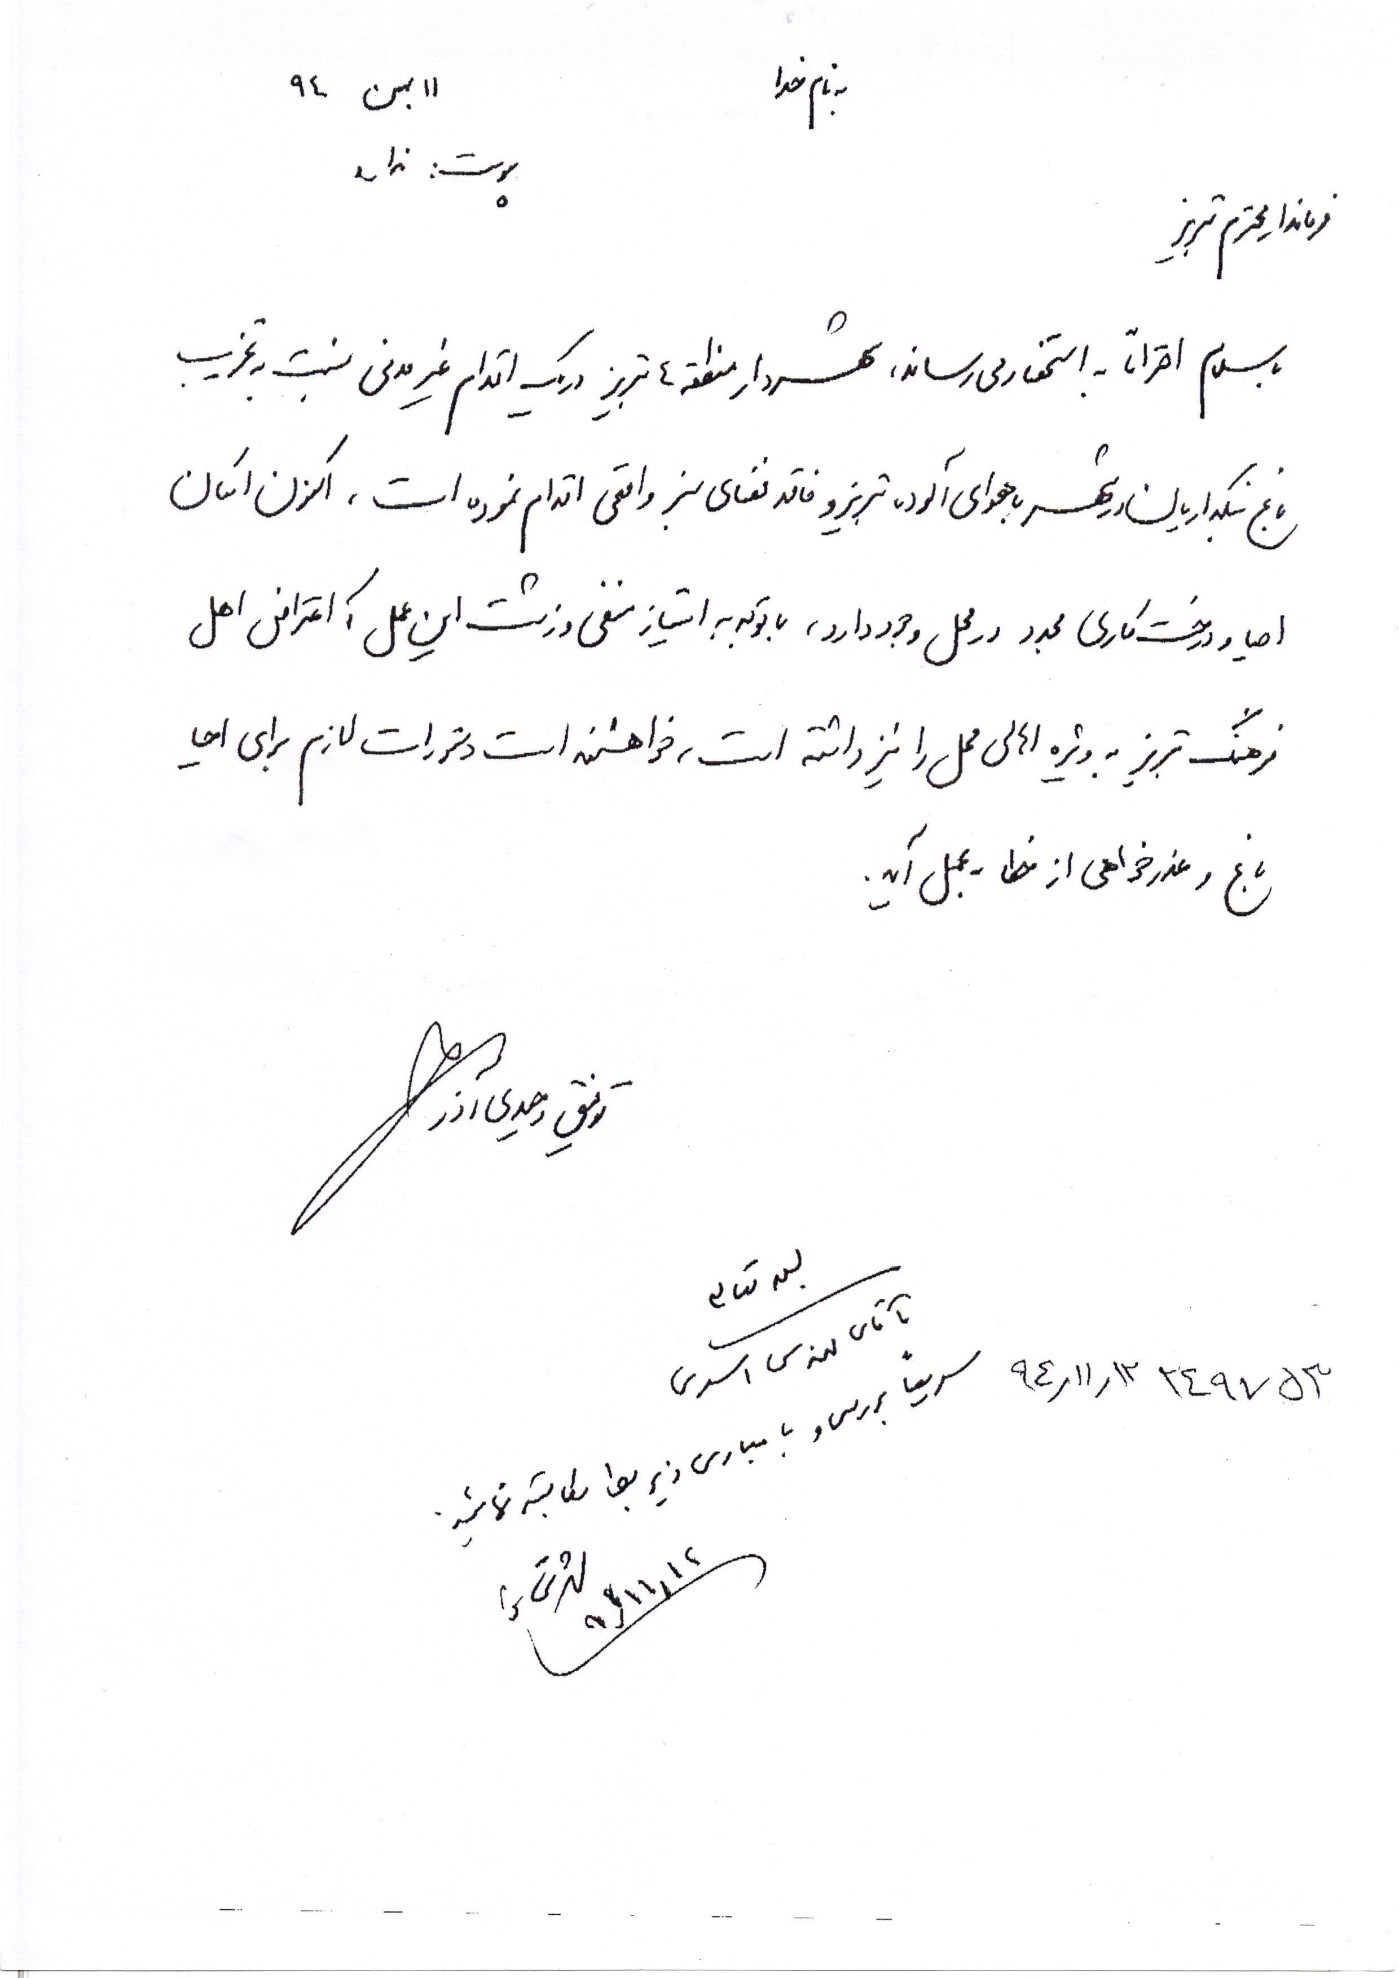 به نام خدا
۱۱ بهمن ۹۴
پیوست: ندارد
فرماندار محترم تبریز
با سلام احتراماً به استحضار می رساند، شهردار منطقه ۴ تبریز در یک اقدام غیر مدنی نسبت به تخریب
باغ نیکداریان در شهر با هوای آلوده تبریز و فاقد فضای سبز واقعی اقدام نموده است، اکنون امکان
احیا و درخت کاری مجدد در محل وجود دارد، با توجه به امتیاز منفی و زشت این عمل که اعتراض اهل
فرهنگ تبریز به ویژه اهالی محل را نیز داشته است، خواهشمند است دستورات لازم برای احیا
باغ و عذرخواهی از خطا به عمل آید.
توفیق وحیدی آذر
بسمه تعالی
آقای مهندس اسدی
سریعاً بررسی و با مبادی ذیربط مکاتبه نمائید.
۲۴۹۷۵۳ ۹۴٫۱۱٫۱۲
۹۴٫۱۱٫۱۲